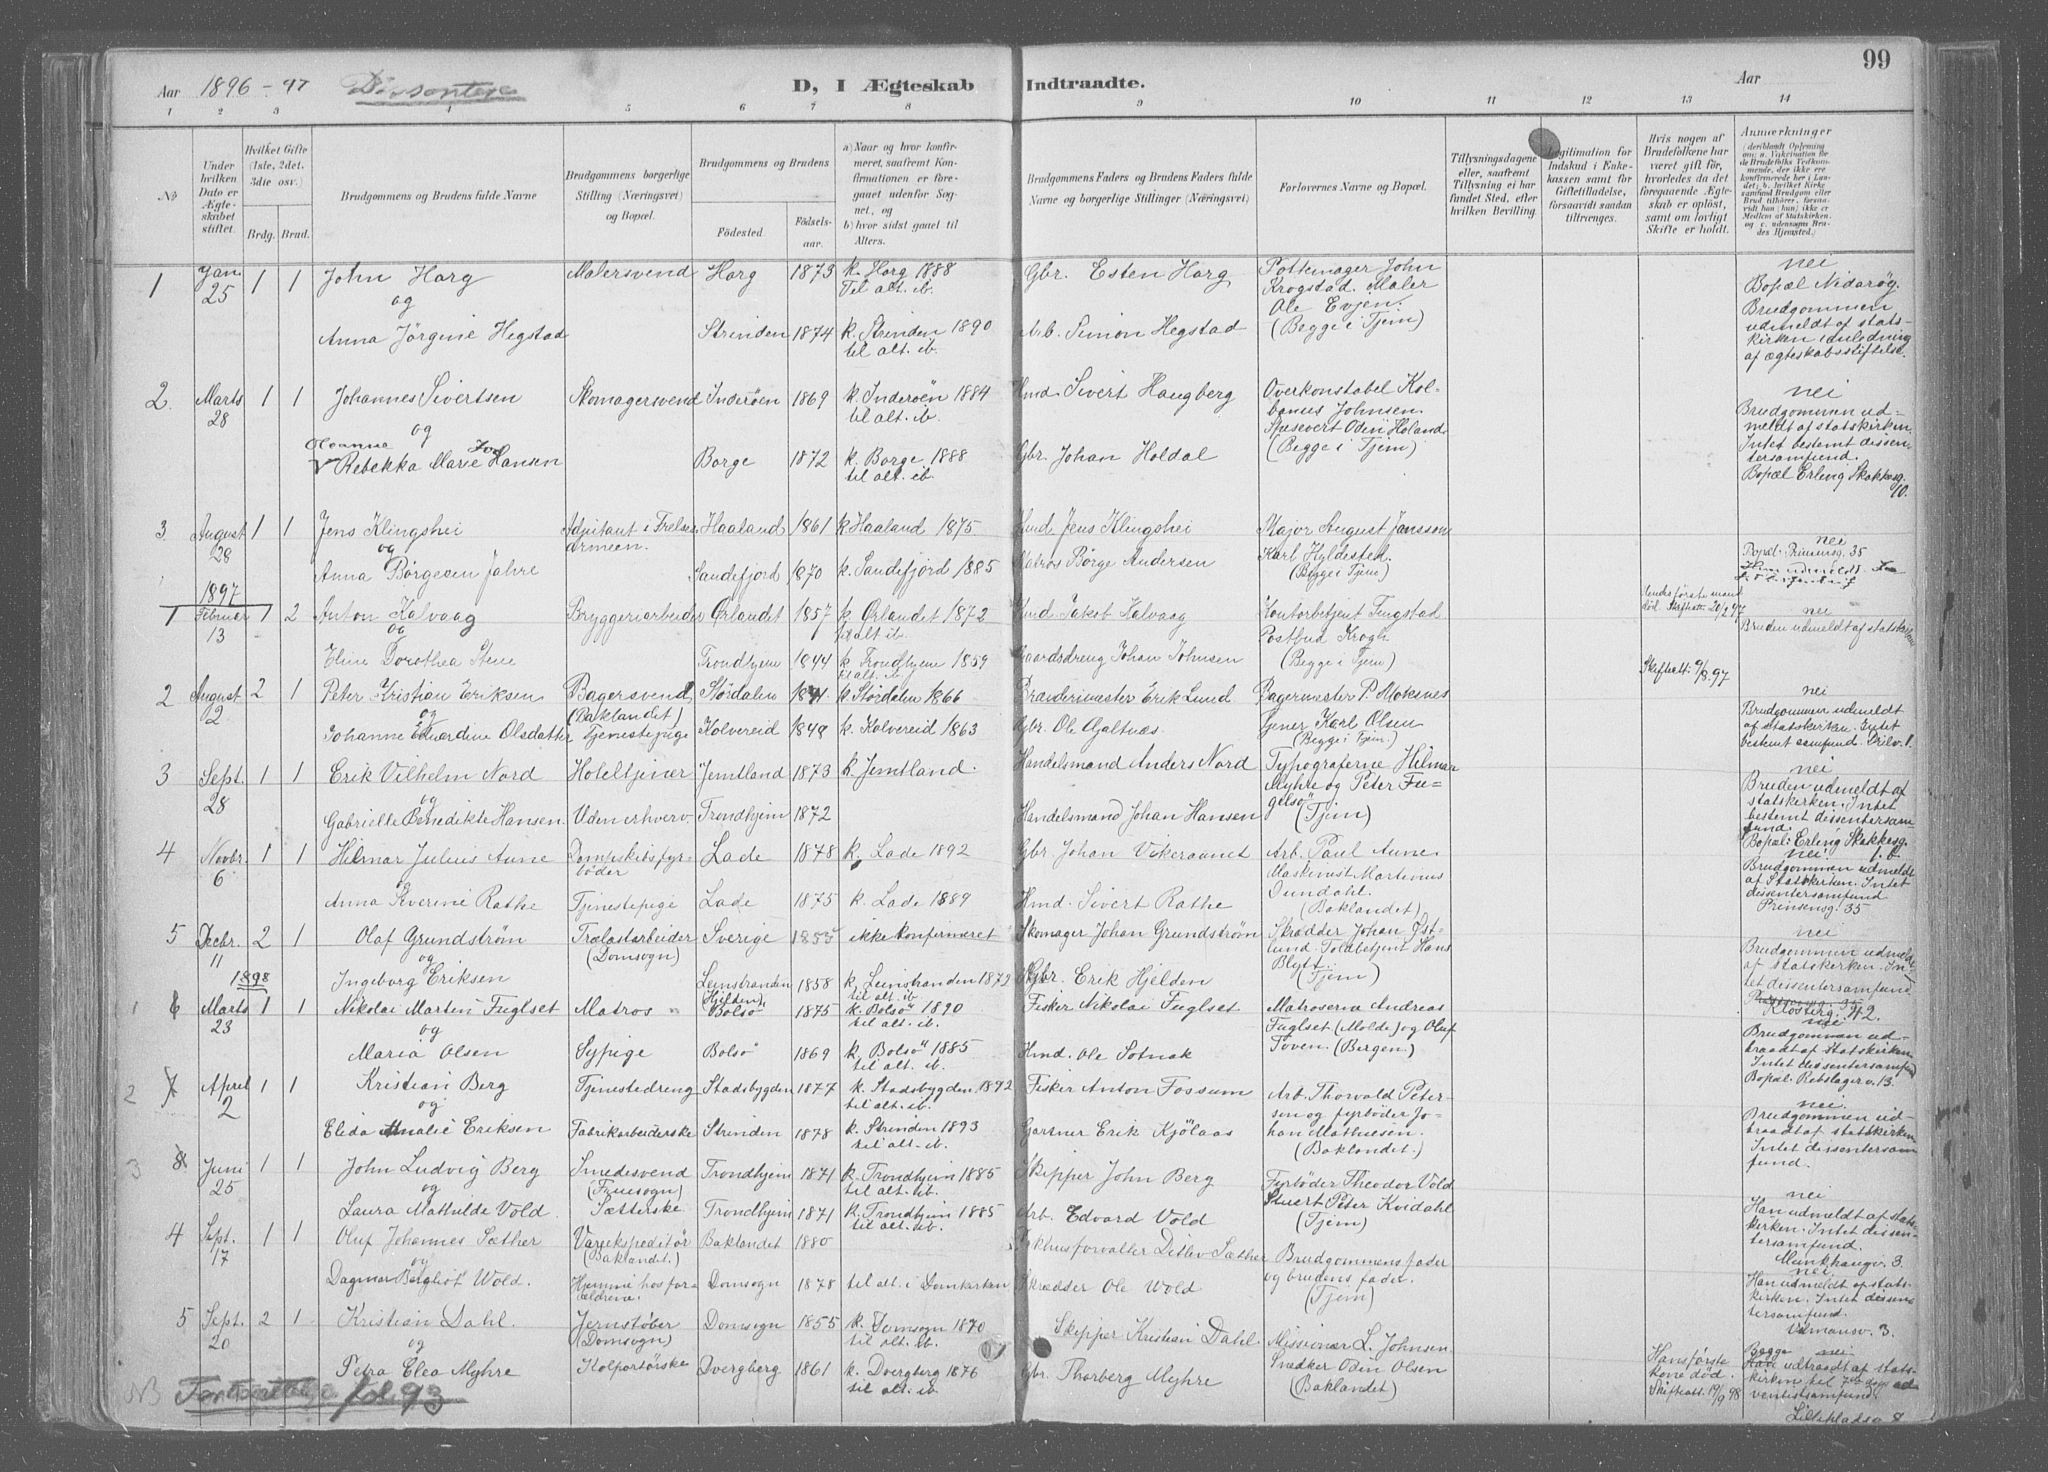 99
Aar 1896 - 97 Dissentere D, I Ægteskab Indtraadte. Aar
1 2 3 4 5 6 7 8 9 10 11 12 13 14
No
Under hvilken Dato er Ægteskabet stiftet.
Hvilket Gifte (1ste, 2det, 3die osv.)
Brdg. Brud.
Brudgommens og Brudens fulde Navne
Brudgommens borgerlige Stilling (Næringsvei) og Bopæl.
Brudgommens og Brudens
Fødested. Fødselsaar.
a) Naar og hvor konfirmeret, saafremt Konfirmationen er foregaaet udenfor Sognet, og
b) hvor sidst gaaet til Alters.
Brudgommens Faders og Brudens Faders fulde Navne og borgerlige Stillinger (Næringsvei)
Forlovernes Navne og Bopæl.
Tillysningsdagene eller, saafremt Tillysning ei har fundet Sted, efter hvilken Bevilling.
Legitimation for Indskud i Enkekassen samt for Giftetilladelse, forsaavidt saadan tiltrænges.
Hvis nogen af Brudefolkene har været gift før, hvorledes da det foregaaende Ægteskab er opløst, samt om lovligt Skifte er holdt.
Anmærkninger
1 Jan. 25 1 1 John Horg Malersvend Horg 1873 k. Horg 1888 Til alt. ib. Gbr. Esten Horg Pottemager John Krogstad. Maler Ole Evjen. (Begge i Tjem) nei Bopæl Nidarøg. Brudgommen udmeldt af statskirken i anledning af ægteskabsstiftelse.
og
Anna Jørgine Hegstad Strinden 1874 k. Strinden 1890 til alt. ib. Arb. Simon Hegstad
2 Marts 28 1 1 Johannes Sivertsen Skomagersvend Inderøen 1869 k. Inderøen 1884 til alt. ib. Hmd. Sivert Haugberg Overkonstabel Kolbanus Johnsen. Odin Holand (Begge i Tjem) nei Brudgommen udmeldt af statskirken. Intet bestemt dissentersamfund. Bopæl Erling Skakkesg. 10.
og
Rebekka Marie Hansen Borge 1872 k. Borge 1888 til alt. ib. Gbr. Johan Holdal
3 August 28 1 1 Jens Klingshei Adjutant i Frelsesarmeen. Haaland 1861 k. Haaland 1875 Hmd Jens Klingshei Major August Jansson Karl Hyldested. (Begge i Tjem) nei Bopæl: Prinsensg. 35
og
Anna Børgesen Jahre Sandefjord 1870 k. Sandefjord 1885 Matros Børge Andersen
1897
1 Februar 13 1 2 Anton Kalvaag Bryggeriarbeider Ørlandet 1857 k Ørlandet 1872 til alt ib. Hmd Jakob Kalvaag Kontorbetjent Tingstad Postbud Krogh (Begge i Tjem) Hendes første mand død. Skifteatt. 20/2 97 nei Bruden udmeldt af statskirken
og
Eline Dorothea Stene Trondhjem 1844 k. Trondhjem 1859 til alt. ib. Gaardsdreng Johan Johnsen
2 August 2 2 1 Peter Kristian Eriksen Bagersvend (Baklandet) Størdalen k. Størdalen 1866 Brændermester Erik Lund Bagermester P. Moksnes Karl Olsen (Begge i Tjem.) Skifteatt. 9/8 97 nei Brudgommen udmeldt af statskirken. Intet bestemt samfund.
og
Johanne Edvardine Olsdatter Tjenestepige Kolvereid 1848 k. Kolvereid 1863 Gbr. Ole Gjaltnæs.
3 Sept. 28 1 1 Erik Vilhelm Nord Hoteltjener Jemtland 1873 k. Jemtland. Handelsmand Anders Nord Typograferne Hilmar Myhre og Peter Fugelsø (Tjem) nei Bruden udmeldt af statskirken. Intet bestemt dissentersamfund. Bopæl: Erling Skakkesg. 1.b.
og
Gabrielle Benedikte Hansen. Uden erhverv. Trondhjem 1872 Handelsmand Johan Hansen
4 Novbr. 6 1 1 Hilmar Julius Aune Dampskibsfyrbøder Lade 1878 k. Lade 1892 Gbr Johan Vikeraunet Arb. Paul Aune. Maskinist Martinius Dundahl. (Baklandet) nei Brudgommen udmeldt af Statskirken. Intet dissentersamfund Prinsensg. 35
og
Anna Severine Rathe Tjenestepige Lade 1875 k. Lade 1889 Hmd. Sivert Rathe
5 Decbr. 11 2 1 Olaf Grundstrøm Trælastarbeider (Domsogn) Sverige 1853 ikke konfirmeret Skomager Johan Grundstrøm Skrædder Johan Østlund Toldbetjent Hans Blytt. (Tjem) nei Brudgommen udmeldt af statskirken. Intet dissentersamfund. Klosterg. 42.
og
1898
Ingeborg Eriksen Leinstranden Hjelden 1858 k. Leinstranden 1872 til alt. ib. Gbr. Erik Hjelden
1 6 Marts 23 1 1 Nikolai Martin Fuglset Matros Bolsø 1875 k. Bolsø 1890 til alt. ib. Fisker Nikolai Fuglset Matroserne Andreas Fuglset (Molde) og Oluf Toven. (Bergen) nei Brudgommen udtraadt af statskirken. Intet dissentersamfund Bopæl: Rebslagerv. 13.
og
Maria Olsen Sypige Bolsø 1869 k. Bolsø 1885 til alt. ib. Hmd. Ole Sotnak
2 7 April 2 1 1 Kristian Berg Tjenestedreng Stadsbygden 1877 k. Stadsbygden 1892 til alt. ib. Fisker Anton Fossum Arb. Thorvald Petersen og fyrbøder Johan Mathiesen. (Baklandet.) nei. Brudgommen udtraadt af statskirken Intet dissentersamfund.
og
Elida Amalie Eriksen Fabrikarbeiderske Strinden 1878 k. Strinden 1893 til alt. ib. Gartner Erik Kjølaas
3 8 Juni 25 1 1 John Ludvig Berg Smedesvend (Fruesogn) Trondhjem 1871 k. Trondhjem 1885 til alt. ib. Skipper John Berg Fyrbøder Theodor Vold Stuert Peter Kvidahl (Tjem) nei Han udmeldt af statskirken. Intet dissentersamfund. Munkhaugv. 3.
og
Laura Mathilde Vold. Sætterske Trondhjem 1871 k. Trondhjem 1885 til alt. ib. Arb. Edvard Vold
4 Sept. 17 1 1 Oluf Johannes Sæther Vareekspeditør (Baklandet.) Baklandet 1880 Pakhusforvalter Ditlev Sæther Brudgommens fader og brudens fader. (Tjem) nei Han udmeldt af statskirken. Intet dissentersamfund. 3.
og
Dagmar Bergliot Wold. Hjemme hos forældrene. Domsogn 1878 til alt. i Domkirken Skrædder Ole Wold
5 Sept. 20 2 1 Kristian Dahl. Jernstøber (Domsogn) Domsogn 1855 k. Domsogn 1870 til alt. ib. Skipper Kristian Dahl. Missionær L. Johnsen Snedker Odin Olsen (Baklandet) Hans første kone død. Skifteatt. 19/9 98 nei Begge udtraadt af statskirken til 7de dags adventistsamfund. Lillekladsv 8
og
Petra Elea Myhre Kolportørske Dverberg 1861 k. Dverberg 1876 til alt. ib. Gbr. Thorberg Myhre
NB Fortsættelse fol. 93